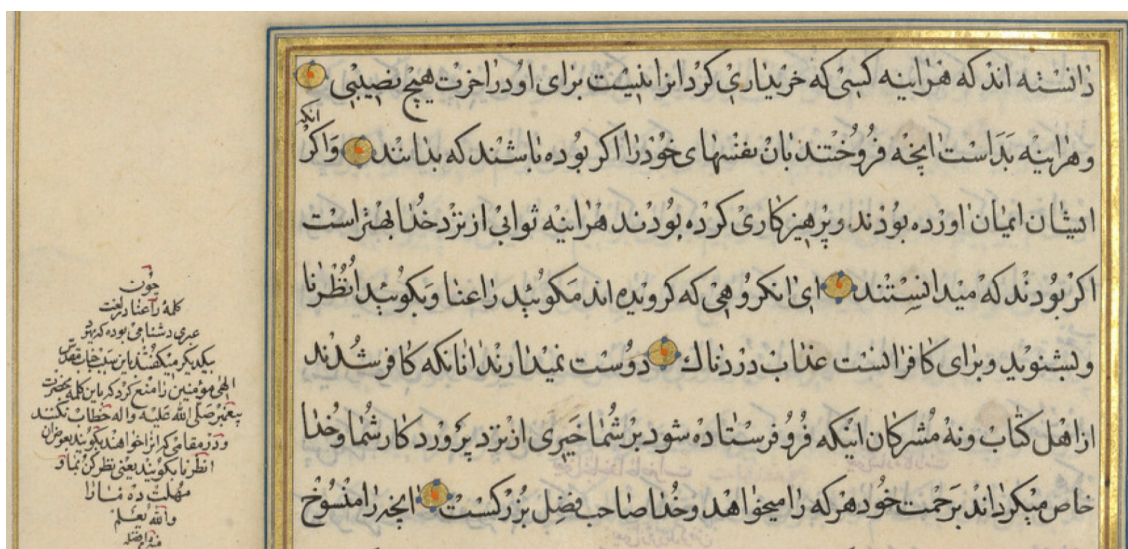 دانسته اند که هراینه کسی که خریداری کرد انرا نیست برای او در اخرت هیچ نصیبی
وهراینه بد است انچه فروختند بان نفسهای خود را اکر بوده باشند که بدانند واکر
انکه
ایشان ایمان اورده بودند وپرهیزکاری کرده بودند هراینه ثوابی از نزد خدا بهتر است
اکر بودند که میدانستند ای انکروهی که کرویده اند مکوئید راعنا وبکوئید انظرنا
وبشنوید وبرای کافرانست عذاب دردناک دوست نمیدارند انانکه کافر شدند
از اهل کتاب ونه مشرکان اینکه فرو فرستاده شود بر شما خیری از نزد پروردکار شما وخدا
خاص میکرداند برحمت خود هرکه را میخواهد وخدا صاحب فضل بزرکست انچه را منسوخ
چون
کلمۀ راعنا در لغت
عبری دشنامی بوده که یهود
بیکدیکر میکفتند باین سبب جناب مقدس
الهی مؤمنین را منع کرد که باین کلمه بحضرت
پیغمبر صلی الله علیه واله خطاب نکنند
ودر مقامی که انرا خواهند بکویند بعوض ان
انظرنا بکویند یعنی نظر کن بما و
مهلت ده ما را
والله یعلم